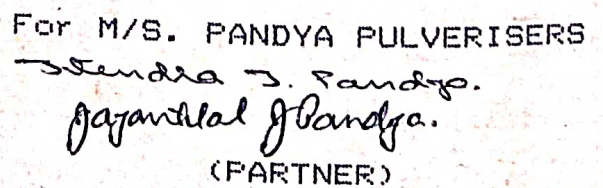 For M/S. PANDYA PULVERISERS
Jitendra J. Pandya.
Jayantilal J Pandya.
(PARTNER)